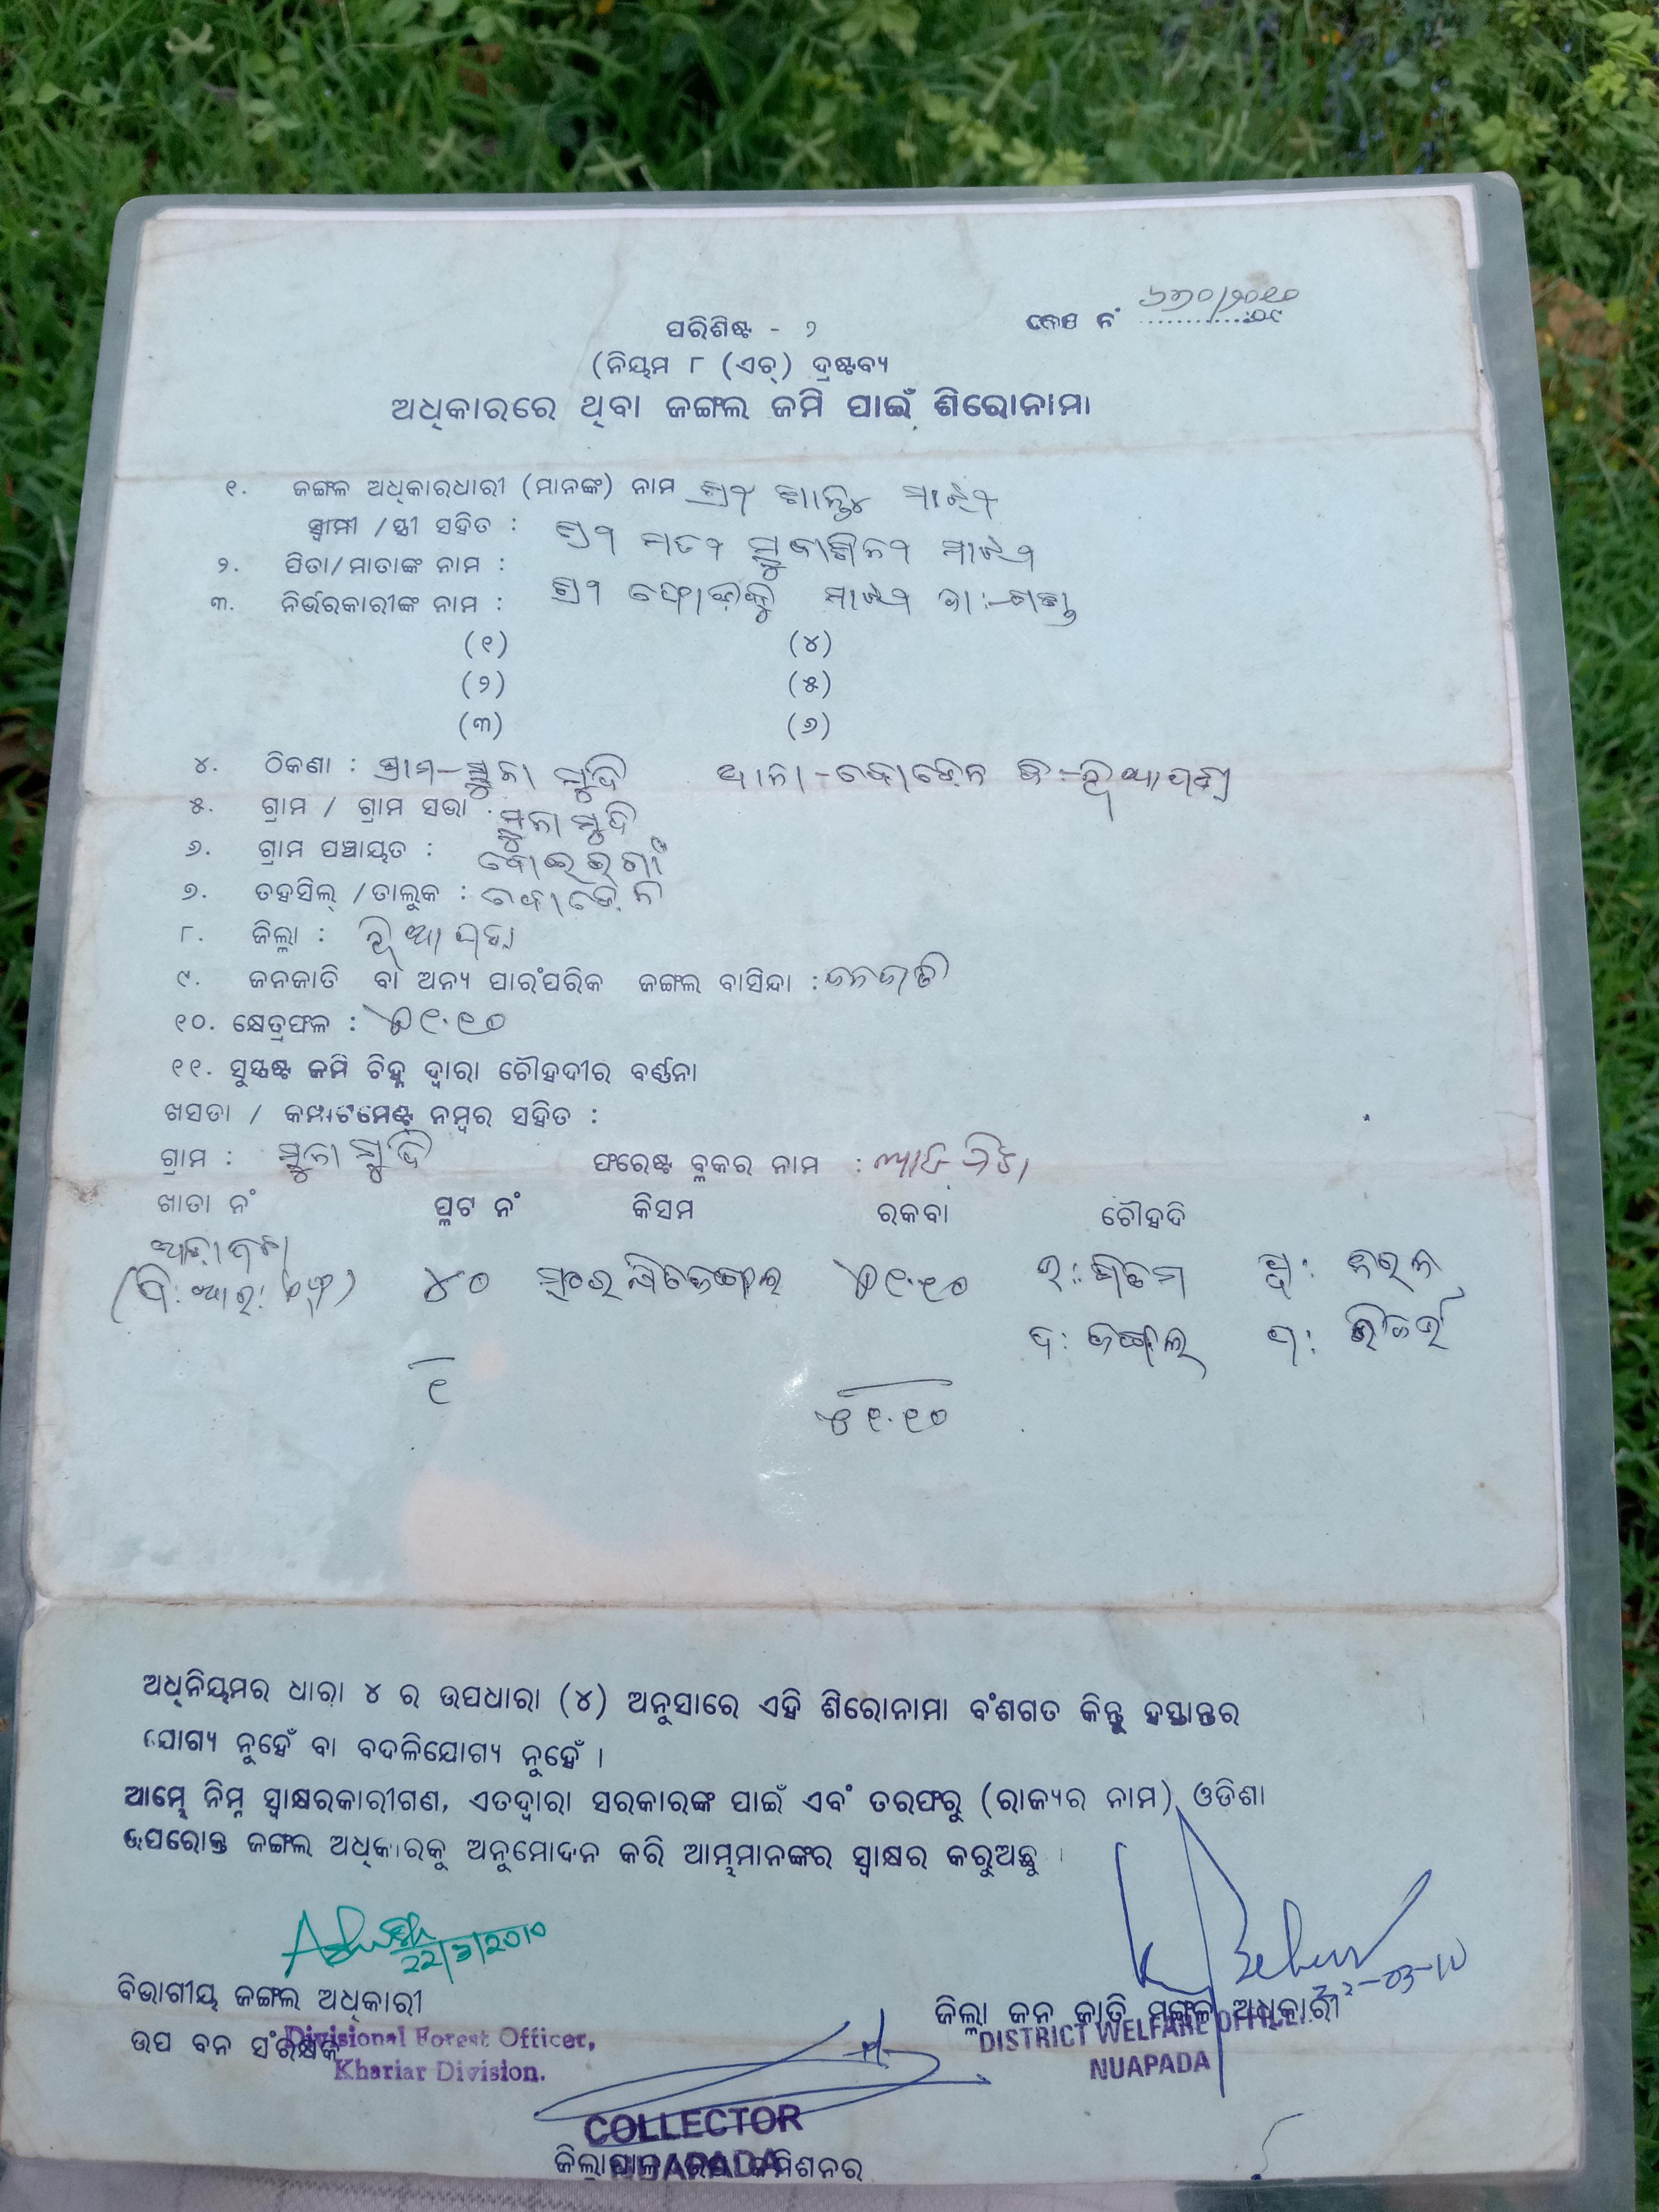 ପରିଶିଷ୍ଟ - ୨
କେସ ନଂ ୬୩୦/୨୦୧୦
(ନିୟମ ୮ (ଏଚ୍) ଦ୍ରଷ୍ଟବ୍ୟ
ଅଧିକାରରେ ଥିବା ଜଙ୍ଗଲ ଜମି ପାଇଁ ଶିରୋନାମା
୧. ଜଙ୍ଗଲ ଅଧିକାରଧାରୀ (ମାନଙ୍କ) ନାମ ଶ୍ରୀ ମାଝୀ
ସ୍ୱାମୀ / ସ୍ତ୍ରୀ ସହିତ : ଶ୍ରୀ ମତୀ ମାଝୀ
୨. ପିତା/ମାତାଙ୍କ ନାମ : ଶ୍ରୀ ମାଝୀ
୩. ନିର୍ଭରକାରୀଙ୍କ ନାମ :
(୧) (୪)
(୨) (୫)
(୩) (୬)
୪. ଠିକଣା : ଗ୍ରାମ-ସୁନା ମୁଦି ଥାନା-ବୋଡେନ ଜି:-ନୂଆପଡ଼ା
୫. ଗ୍ରାମ / ଗ୍ରାମ ସଭା : ସୁନା ମୁଦି
୬. ଗ୍ରାମ ପଞ୍ଚାୟତ :
୭. ତହସିଲ୍ / ତାଲୁକ : ବୋଡେନ
୮. ଜିଲ୍ଲା : ନୂଆପଡ଼ା
୯. ଜନଜାତି ବା ଅନ୍ୟ ପାରଂପରିକ ଜଙ୍ଗଲ ବାସିନ୍ଦା : ଜନଜାତି
୧୦. କ୍ଷେତ୍ରଫଳ : ୧.୧୦
୧୧. ସୁସ୍ପଷ୍ଟ ଜମି ଚିହ୍ନ ଦ୍ୱାରା ଚୌହଦୀର ବର୍ଣ୍ଣନା
ଖସଡା / କମ୍ପାଟମେଣ୍ଟ ନମ୍ବର ସହିତ :
ଗ୍ରାମ : ସୁନା ମୁଦି ଫରେଷ୍ଟ ବ୍ଲକର ନାମ :
ଖାତା ନଂ ପ୍ଲଟ ନଂ କିସମ ରକବା ଚୌହଦି
୪୦ ୧.୧୦ ଉ: ପୂ:
ଦ: ଜଙ୍ଗଲ ପ: ରିଜର୍ଭ
୧ ୧.୧୦
ଅଧିନିୟମର ଧାରା ୪ ର ଉପଧାରା (୪) ଅନୁସାରେ ଏହି ଶିରୋନାମା ବଂଶଗତ କିନ୍ତୁ ହସ୍ତାନ୍ତର
ଯୋଗ୍ୟ ନୁହେଁ ବା ବଦଳିଯୋଗ୍ୟ ନୁହେଁ ।
ଆମ୍ଭେ ନିମ୍ନ ସ୍ୱାକ୍ଷରକାରୀଗଣ, ଏତଦ୍ୱାରା ସରକାରଙ୍କ ପାଇଁ ଏବଂ ତରଫରୁ (ରାଜ୍ୟର ନାମ) ଓଡିଶା
ଉପରୋକ୍ତ ଜଙ୍ଗଲ ଅଧିକାରକୁ ଅନୁମୋଦନ କରି ଆମ୍ଭମାନଙ୍କର ସ୍ୱାକ୍ଷର କରୁଅଛୁ ।
22/3/2010
22-03-10
ବିଭାଗୀୟ ଜଙ୍ଗଲ ଅଧିକାରୀ
ଜିଲ୍ଲା ଜନ ଜାତି ମଙ୍ଗଳ ଅଧିକାରୀ
ଉପ ବନ ସଂରକ୍ଷକ
Divisional Forest Officer,
Khariar Division.
DISTRICT WELFARE OFFICER
NUAPADA
COLLECTOR
NUAPADA
ଜିଲ୍ଲାପାଳ କମିଶନର